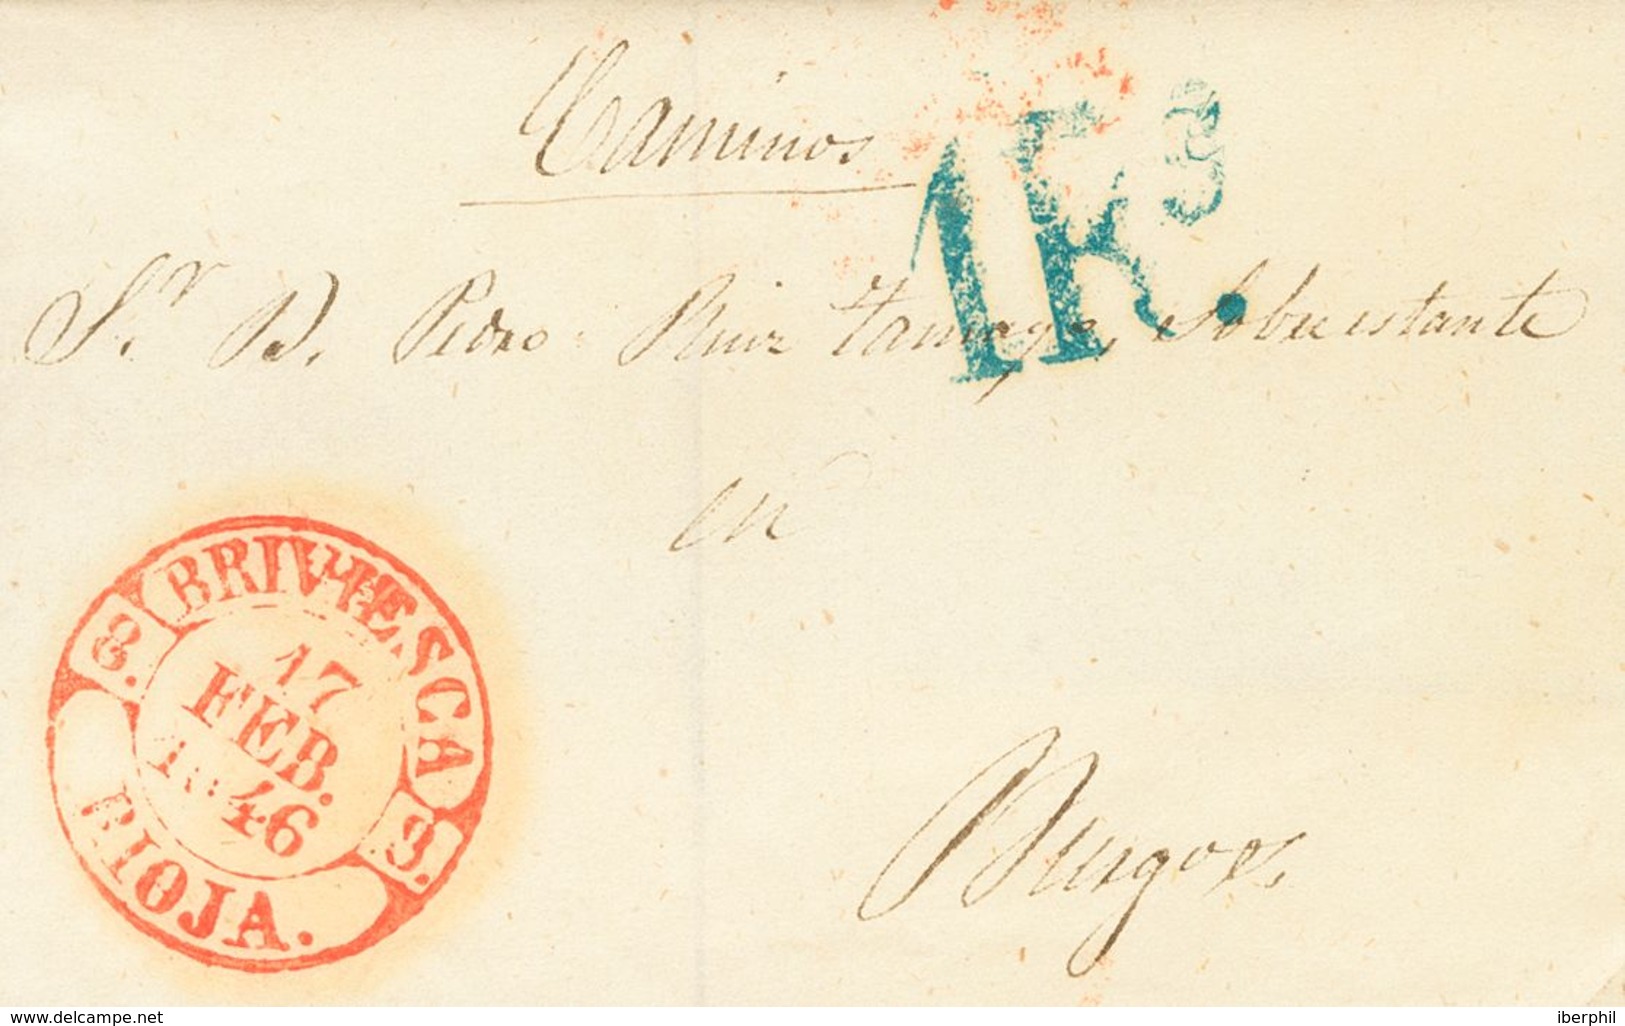 Caminos
1Rs.
Sr. D. Pedro Ruiz Tamayo, Sobrestante
en
Burgos
BRIVIESCA
8. 8.
17
FEB.
1846
RIOJA.
www.delcampe.net
iberphil